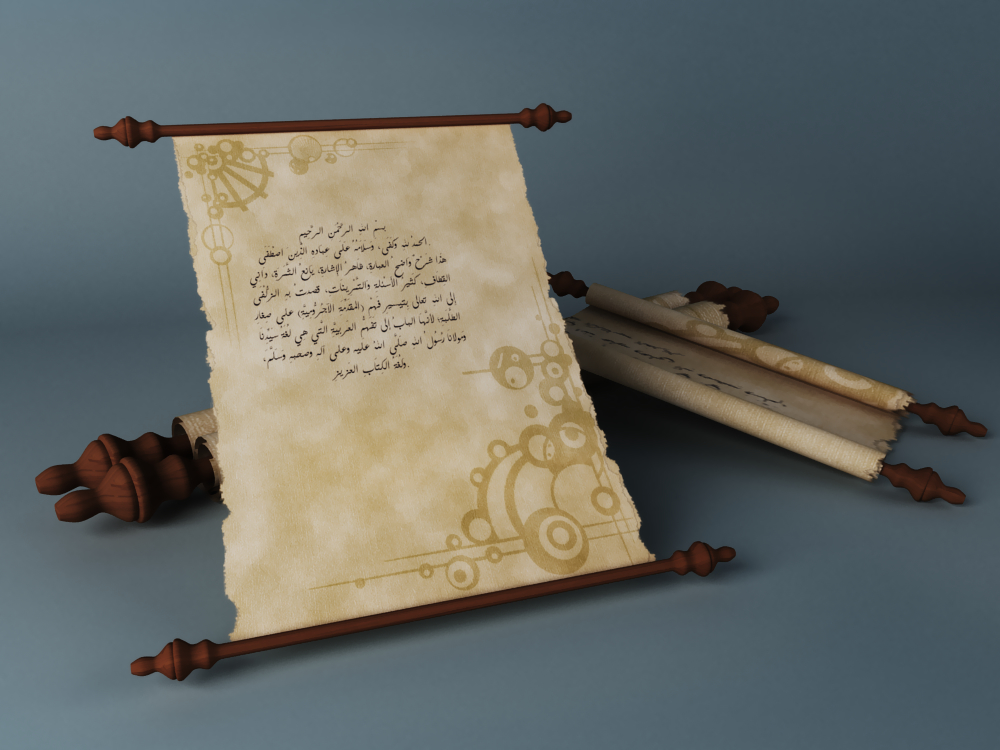 بسم الله الرحمن الرحيم
الحمد لله وكفى، وسلامٌ على عباده الذين اصطفى
هذا شرحٌ واضحُ العبارة، ظاهرُ الإشارة، يانعُ الثمرة، داني
القطاف، كثيرُ الأسئلة والتمرينات، قصدتُ به الزلفى
إلى الله تعالى بتيسير فهم (المقدمة الآجرومية) على صغار
الطلبة، لأنها البابُ إلى تفهم العربية التي هي لغة سيدنا
ومولانا رسول الله صلى الله عليه وعلى آله وصحبه وسلم،
ولغة الكتاب العزيز.